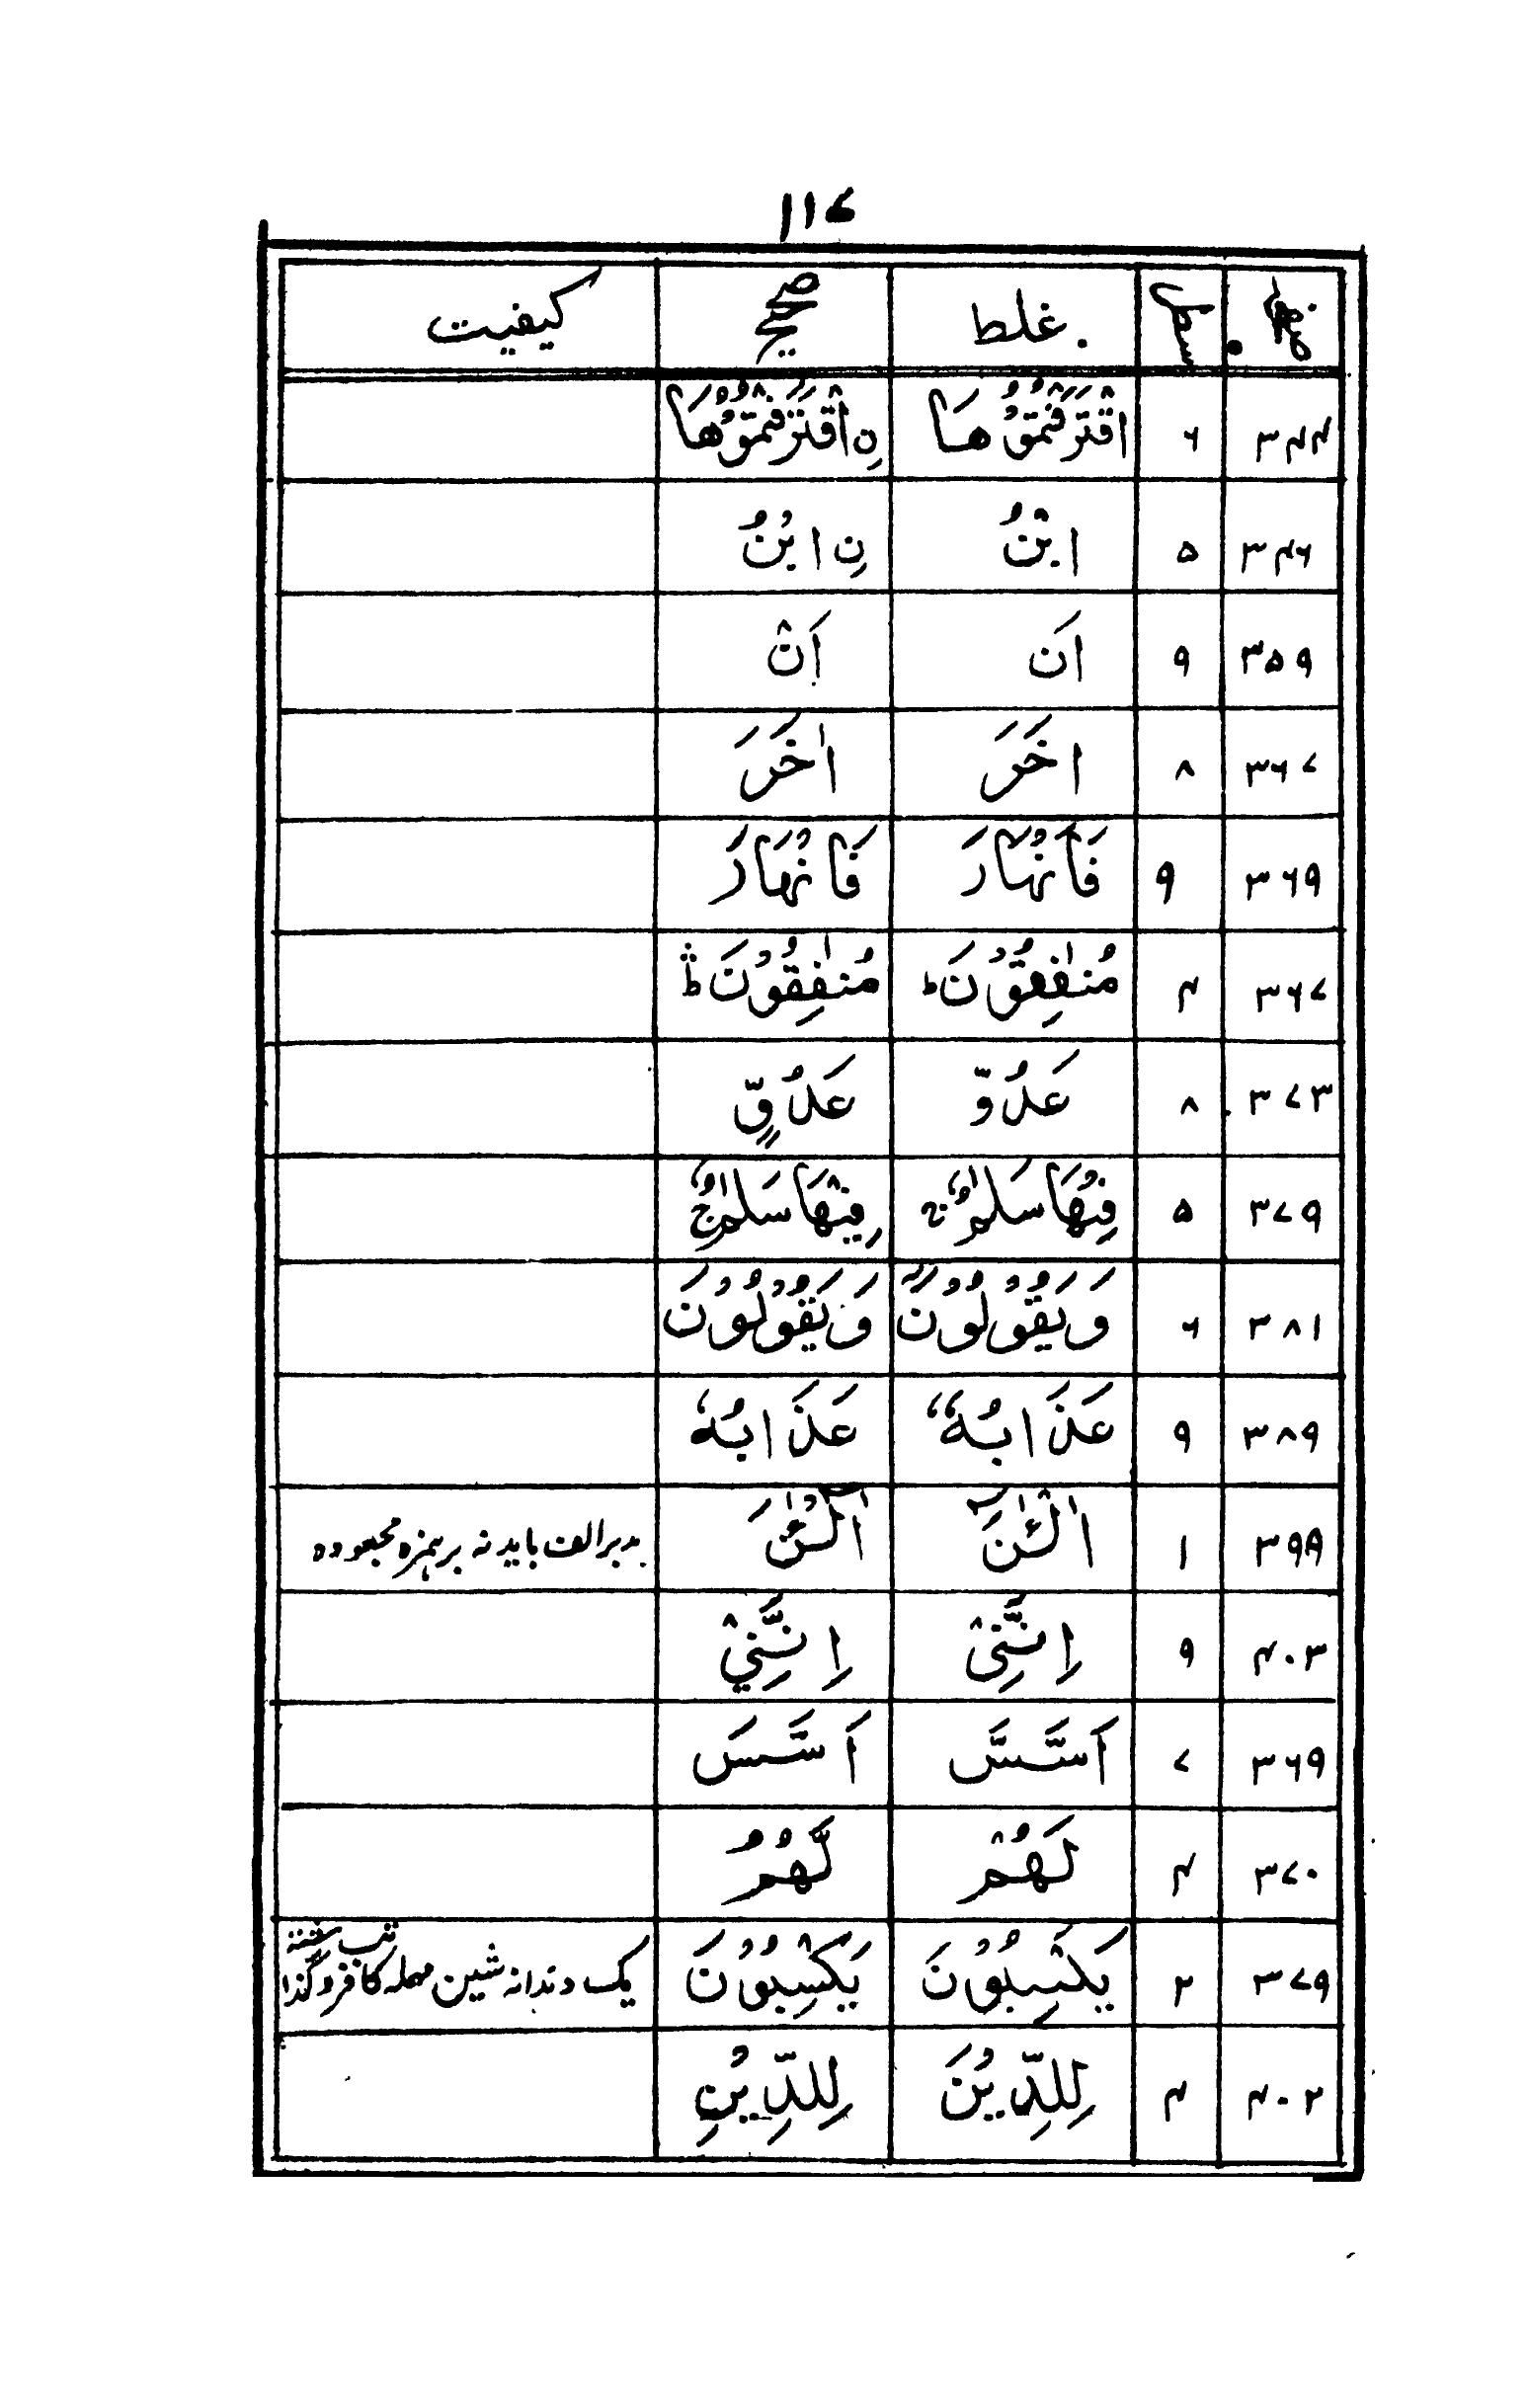 ۱۱۷
صفحه سطر غلط صحیح کیفیت
۳۴۴ ۶ اقْتَرَفْتُمُوْهَا نِ اقْتَرَفْتُمُوْهَا
۳۴۶ ۵ ابْنُ نِ ابْنُ
۳۵۹ ۹ اَن اَنْ
۳۶۷ ۸ اخَرَ اٰخَرَ
۳۶۹ ۹ فَانْهَارَ فَانْهَارَ
۳۶۷ ۴ مُنٰفِقُوْنَ ط مُنٰفِقُوْنَ ط
۳۷۳ ۸ عَدُوّ عَدُوٍّ
۳۷۹ ۵ فِيْهَا سَلٰمٌ فِيْهَا سَلٰمٌ ج
۳۸۱ ۶ وَيَقُوْلُوْنَ وَيَقُوْلُوْنَ
۳۸۹ ۹ عَذَابُهٗ عَذَابُهٗ
۳۹۹ ۱ اٰلْئٰنَ آٰلْئٰنَ مد بر الف باید نه بر همزه
۴۰۳ ۹ اِنَّنِیْ اِنَّنِيْ
۳۶۹ ۷ اَسَّسَّ اَسَّسَ
۳۷۰ ۴ لَهُمْ لَّهُمْ
۳۷۹ ۲ يَكْسِبُوْنَ يَكْسِبُوْنَ یک دندانه شین مهمله کاتب فروگذاشته
۴۰۲ ۴ لِلدِّيْنَ لِلدِّيْنِ